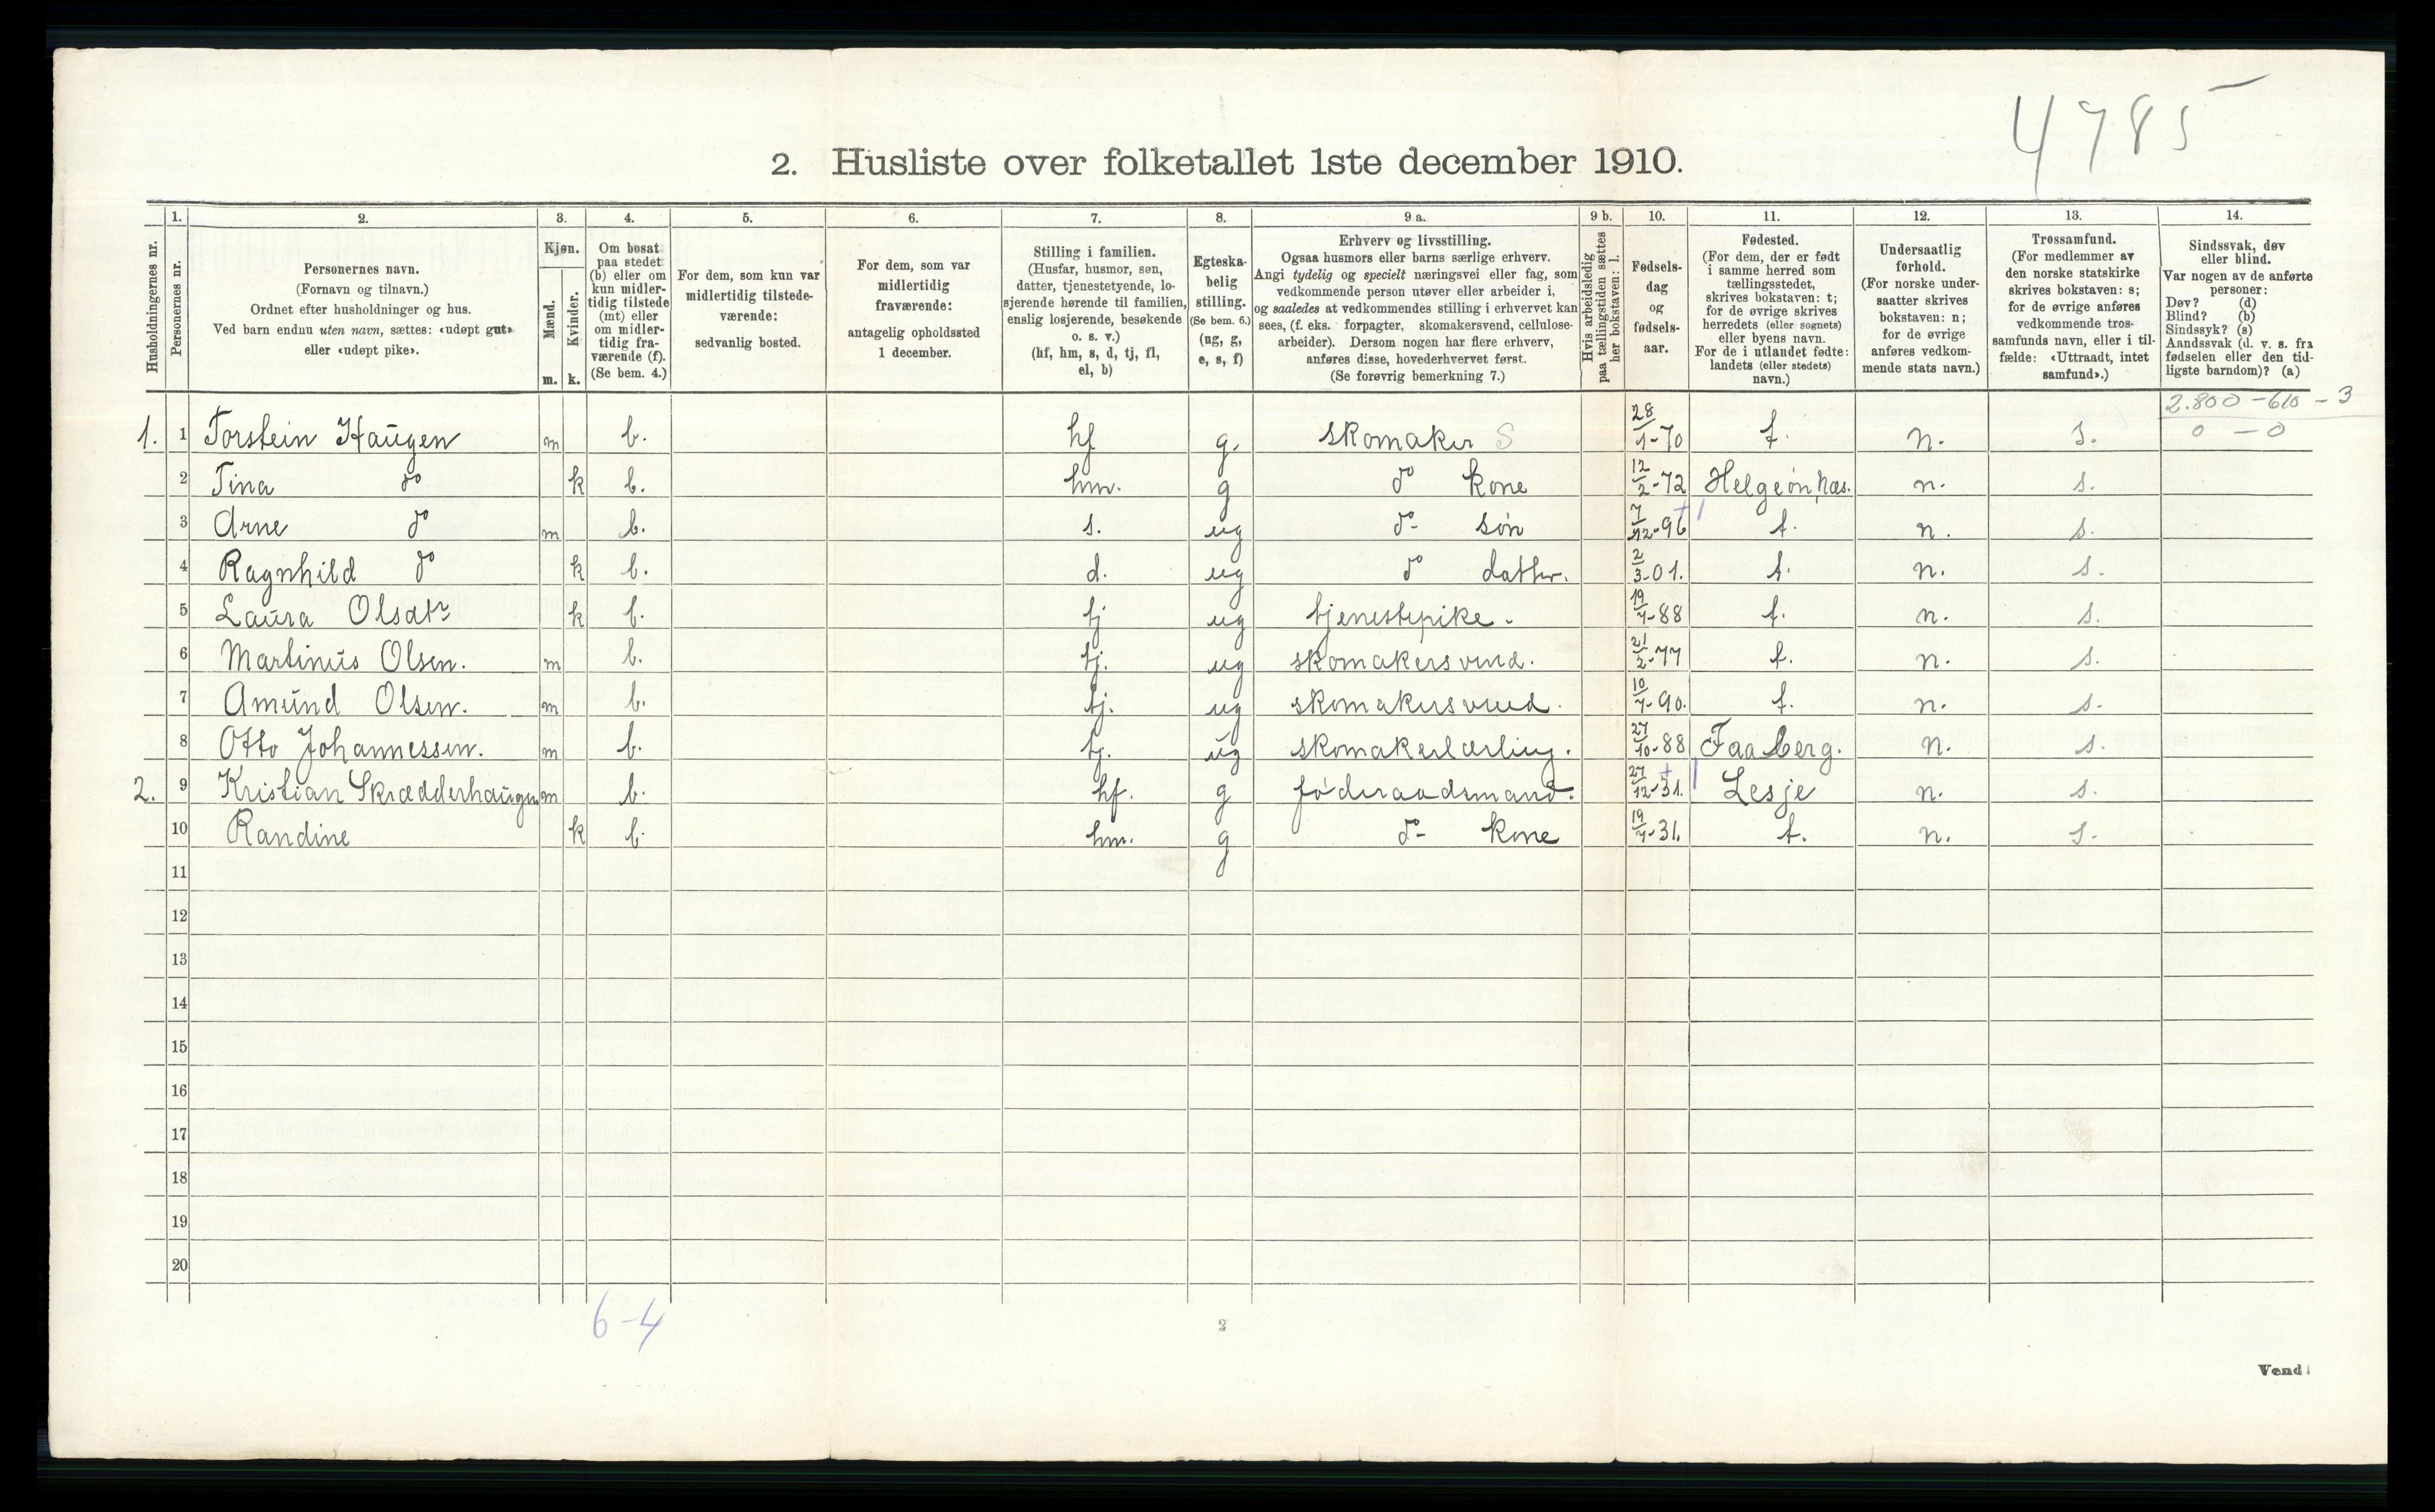 4785
2. Husliste over folketallet 1ste december 1910.
Husholdningernes nr.
1.
Personernes nr.
2.
Personernes navn.
(Fornavn og tilnavn.)
Ordnet efter husholdninger og hus.
Ved barn endnu uten navn, sættes: «udøpt gut»
eller «udøpt pike».
3.
Kjøn.
Mænd.
Kvinder.
m. k.
4.
Om bosat
paa stedet
(b) eller om
kun midler-
tidig tilstede
(mt) eller
om midler-
tidig fra-
værende (f).
(Se bem. 4.)
5.
For dem, som kun var
midlertidig tilstede-
værende:
sedvanlig bosted.
6.
For dem, som var
midlertidig
fraværende:
antagelig opholdssted
1 december.
7.
Stilling i familien.
(Husfar, husmor, søn,
datter, tjenestetyende, lo-
sjerende hørende til familien,
enslig losjerende, besøkende
o. s. v.)
(hf, hm, s, d, tj, fl,
el, b)
8.
Egteska-
belig
stilling.
(Se bem. 6.)
(ug, g,
e, s, f)
9 a.
Erhverv og livsstilling.
Ogsaa husmors eller barns særlige erhverv.
Angi tydelig og specielt næringsvei eller fag, som
vedkommende person utøver eller arbeider i,
og saaledes at vedkommendes stilling i erhvervet kan
sees, (f. eks. forpagter, skomakersvend, cellulose-
arbeider). Dersom nogen har flere erhverv,
anføres disse, hovederhvervet først.
(Se forøvrig bemerkning 7.)
9 b.
Hvis arbeidsledig
paa tællingstiden sættes
her bokstaven: l.
10.
Fødsels-
dag
og
fødsels-
aar.
11.
Fødested.
(For dem, der er født
i samme herred som
tællingsstedet,
skrives bokstaven: t;
for de øvrige skrives
herredets (eller sognets)
eller byens navn.
For de i utlandet fødte:
landets (eller stedets)
navn.)
12.
Undersaatlig
forhold.
(For norske under-
saatter skrives
bokstaven: n;
for de øvrige
anføres vedkom-
mende stats navn.)
13.
Trossamfund.
(For medlemmer av
den norske statskirke
skrives bokstaven: s;
for de øvrige anføres
vedkommende tros-
samfunds navn, eller i til-
fælde: «Uttraadt, intet
samfund».)
14.
Sindssvak, døv
eller blind.
Var nogen av de anførte
personer:
Døv? (d)
Blind? (b)
Sindssyk? (s)
Aandssvak (d. v. s. fra
fødselen eller den tid-
ligste barndom)? (a)
2.800 - 610 - 3
1. 1 Torstein Haugen m b. hf g. skomaker S 28/1-70 t. n. s. 0 - 0
2 Tina do k b. hm. g do kone 12/2-72 Helgeøn, Næs. n. s.
3 Arne do m b. s. ug do søn 7/12-96 t. n. s.
4 Ragnhild do k b. d. ug do datter. 2/3-01. t. n. s.
5 Laura Olsdtr k b. tj ug tjenestepike. 19/7-88 t. n. s.
6 Martinus Olsen. m b. tj. ug skomakersvend. 21/2-77 t. n. s.
7 Amund Olsen. m b. tj. ug skomakersvend. 10/7-90. t. n. s.
8 Otto Johannessen. m b. tj. ug skomakerlærling. 27/10-88 Faaberg. n. s.
2. 9 Kristian Skrædderhaugen m b. hf. g føderaadsmand. 27/12-31. Lesje n. s.
10 Randine k b. hm. g do kone 19/7-31. t. n. s.
11
12
13
14
15
16
17
18
19
20
6-4
2
Vend!